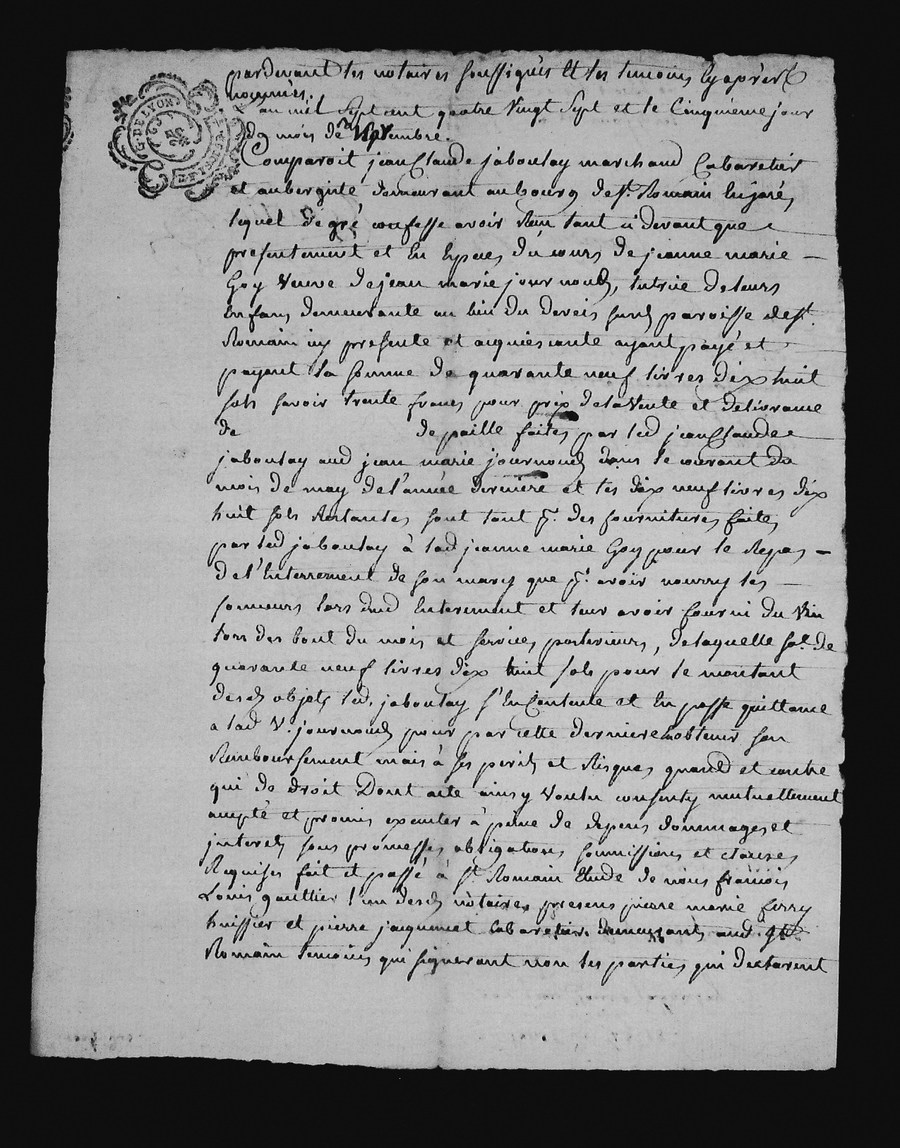 G. DE LYON
pardevant les notaires soussignés et les temoins cy après
nommés.
an mil sept cent quatre vingt sept et le cinquieme jour
du mois de novembre.
Comparoit jean Claude jaboulay marchand Cabaretier
et aubergiste demeurant au bourg de st. Romain en jarés
lequel de gré confesse avoir Reçu tant ci devant que
presentement et En Especes du cours de jeanne marie
Goy veuve de jean marie journoud, tutrice de leurs
Enfans demeurante au lieu du Deveis susd. paroisse de st.
Romain icy presente et acquiescante ayant payé et
payant la somme de quarante neuf livres dix huit
sols savoir trente francs pour prix de la vente et delivrance
de de paille faites par led jean Claude
jaboulay aud jean marie journoud dans le courant du
mois de may de l'année derniere et les dix neuf livres dix
huit sols Restantes sont tant pr. des fournitures faites
par led jaboulay à lad jeanne marie Goy pour le Repas
de l'Enterrement de son mary que pr. avoir nourry les
sonneurs lors dud Enterement et leur avoir fourni du vin
lors des bout du mois et services posterieurs, de laquelle se. de
quarante neuf livres dix huit sols pour le montant
desd. objets led. jaboulay s'En Contente et En passe quittance
a lad V. journoud pour par cette derniere obtenir son
Remboursement mais à ses perils et Risques quand et contre
qui de droit Dont acte ainsy voulu consenty mutuellement
accepté et promis executer à peine de depens dommages et
interets sous promesses obligations soumissions et clauses
Requises fait et passé à st. Romain Etude de nous françois
Louis gaultier l'un desd. notaires presens pierre marie ferry
huissier et pierre jacquemet Cabaretier demeurants aud. st.
Romain temoins qui signeront non les parties qui declarent